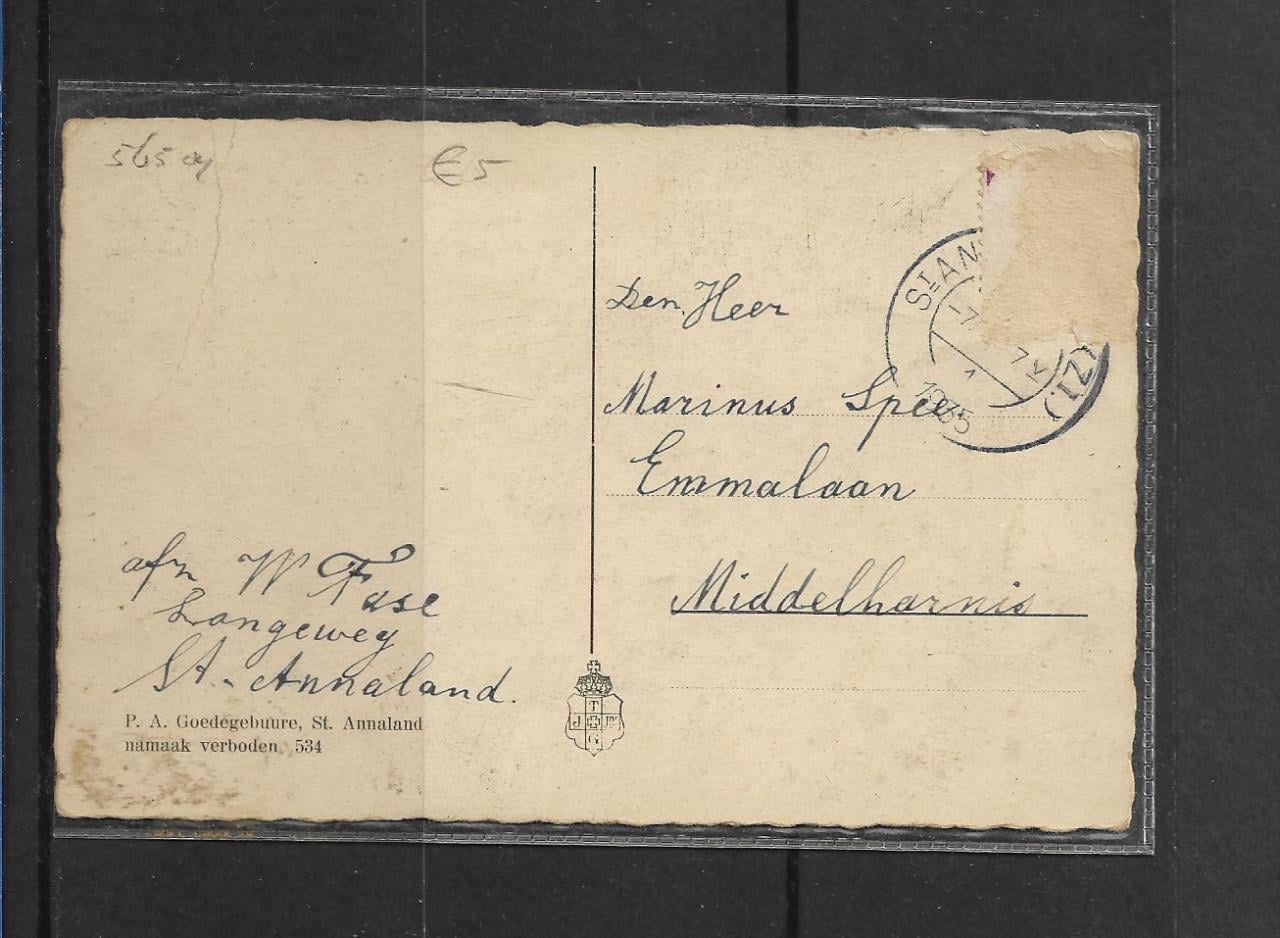 565
€5
Den Heer
Marinus Spee
Emmalaan
Middelharnis
St AN
-7
7
1
1935
(ZL)
afz W Fase
Langeweg
St. Annaland.
P. A. Goedegebuure, St. Annaland
namaak verboden 534
T
J Jr
G